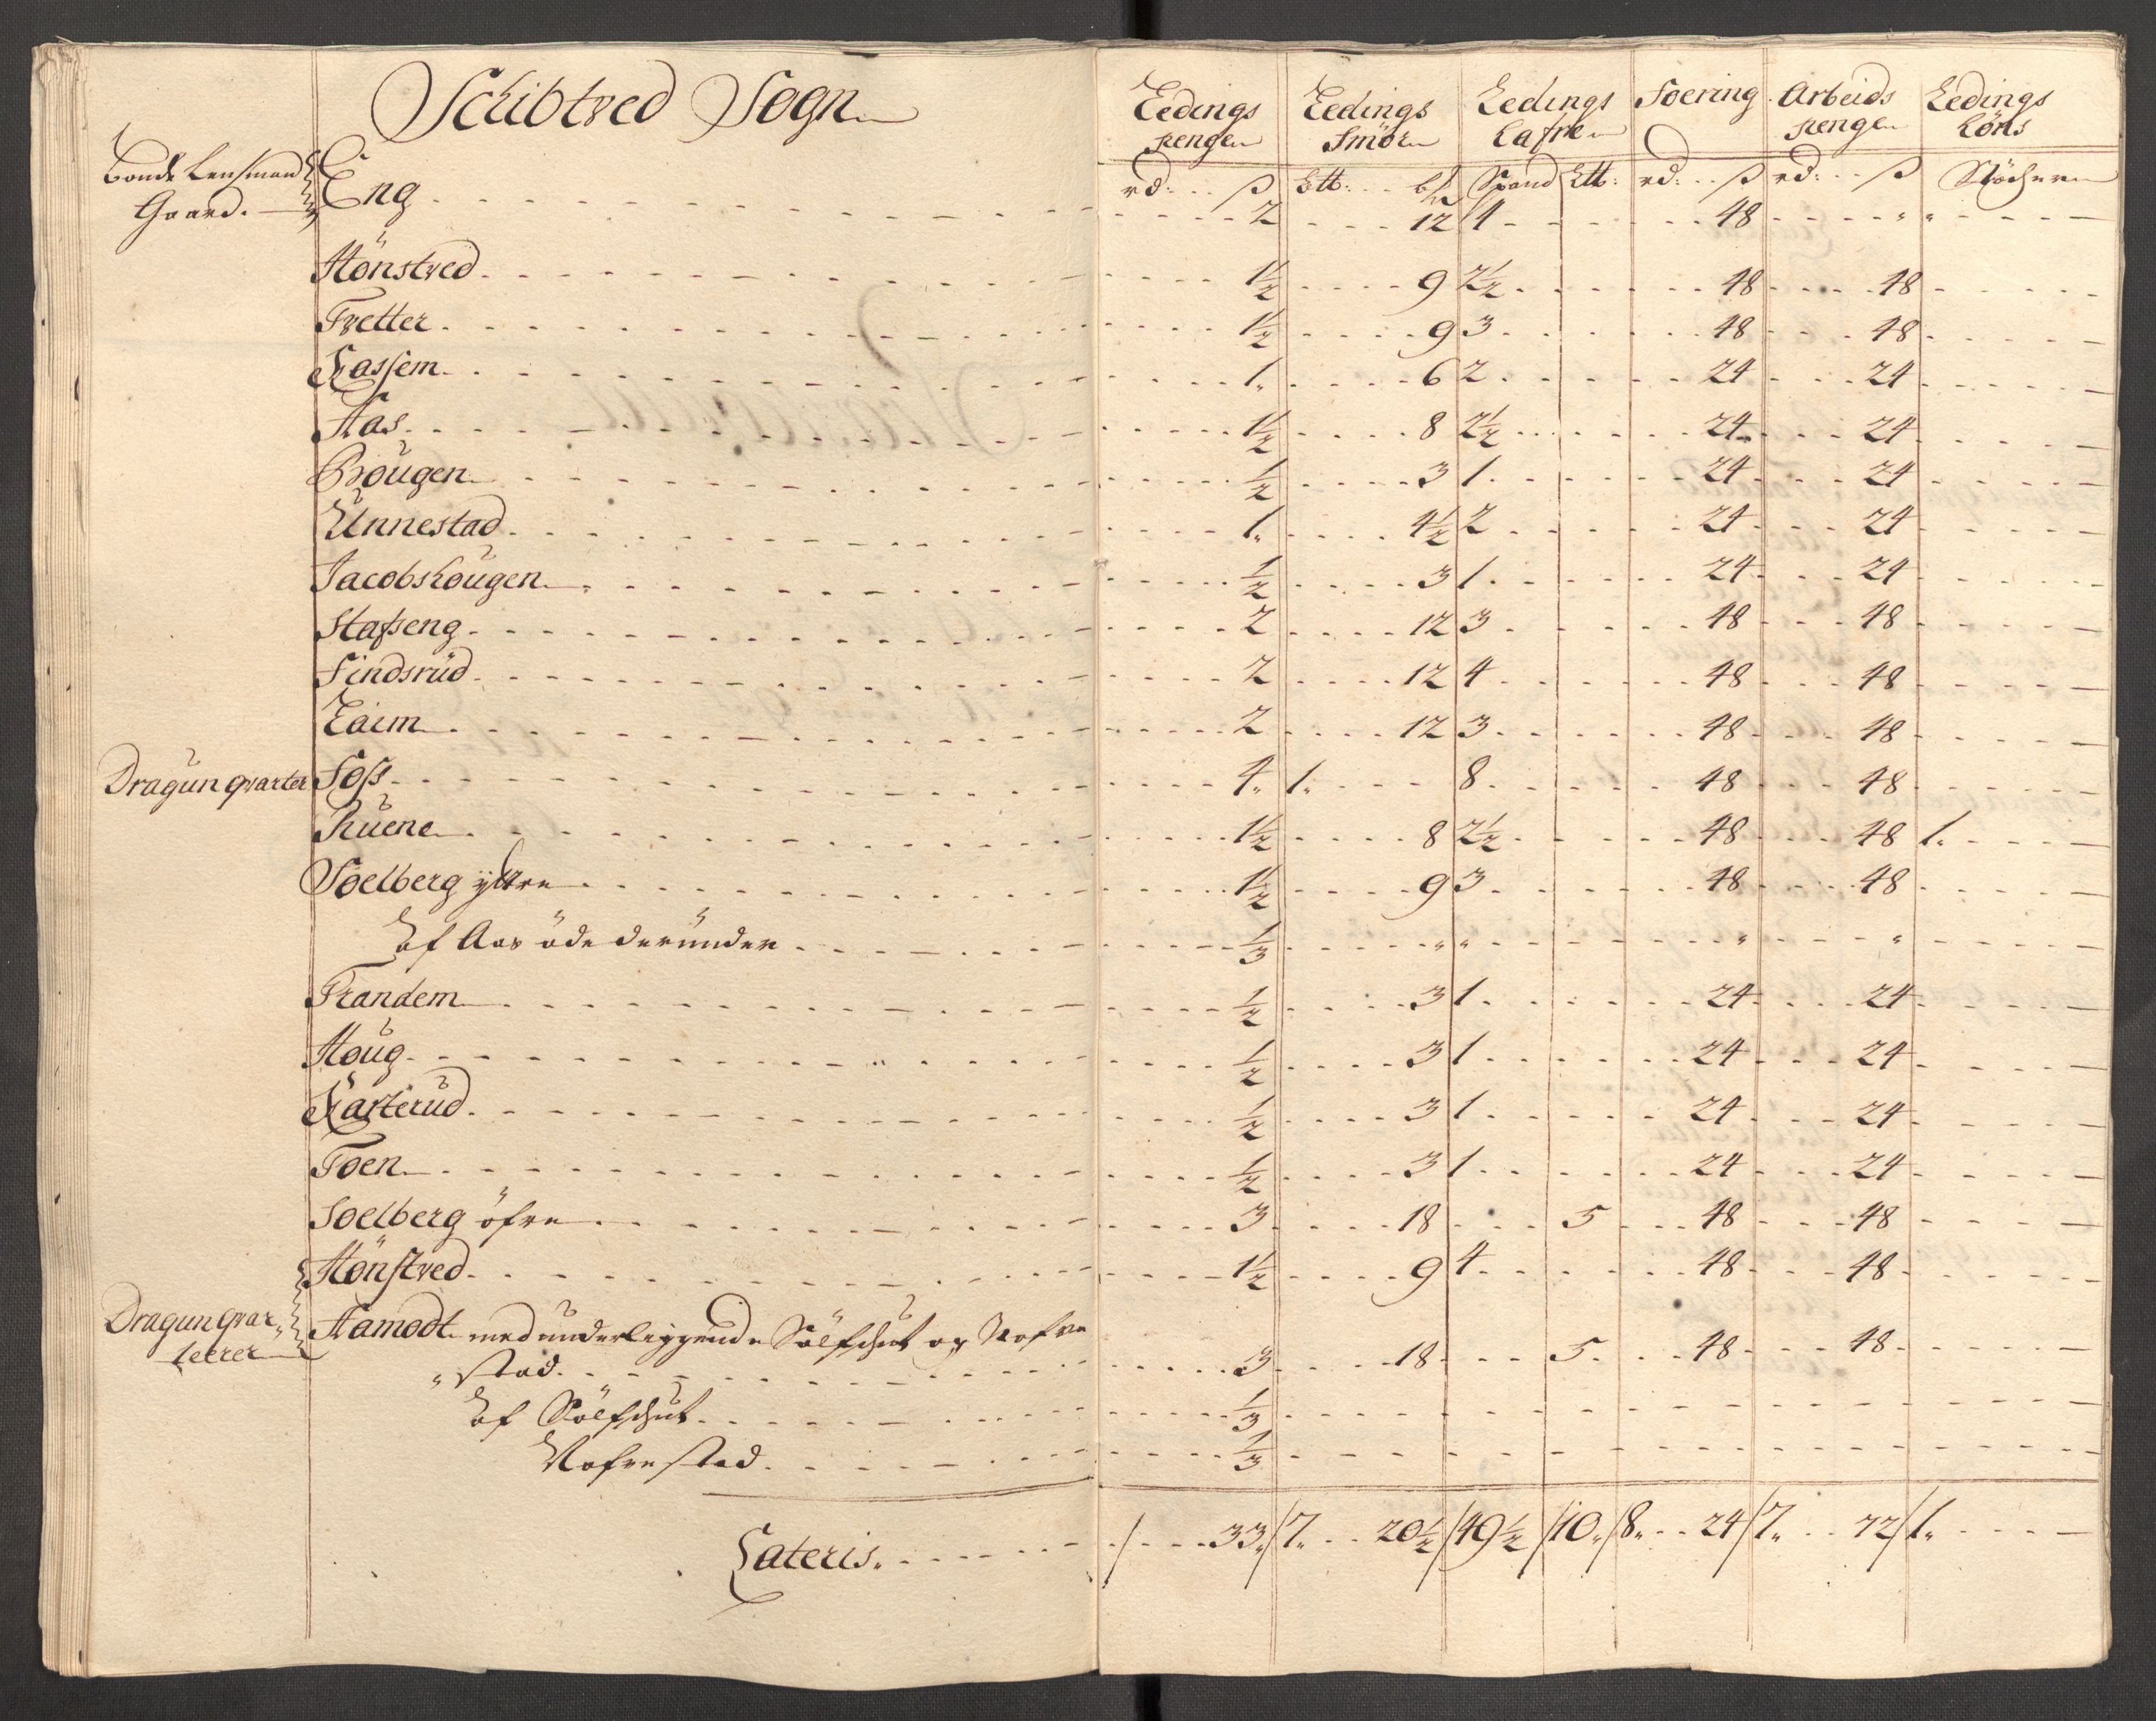 Schibtved Sogn
Ledings penge | Ledings Smör | Ledings Hafre | Foering | Arbeids penge | Ledings Höns
rd: ß | Ltt: | Spand Ltt: | rd: ß | rd: ß | Stöcher
Bonde Lensmand Gaard. Eng 2 12 4 48 " "
Hönstved 1½ 9 2½ 48 48
Tvetter 1½ 9 3 48 48
Kassem 1. 6 2 24 24
Aas 1½ 8 2½ 24 24
Hougen ½ 3 1 24 24
Unnestad 1. 4½ 2 24 24
Jacobshougen ½ 3 1 24 24
Stafseng 2 12 3 48 48
Findsrud 2 12 4 48 48
Laim 2 12 3 48 48
Dragun qvarter Foss 4. 1. 8 48 48
Ruene 1½ 8 2½ 48 48 1.
Soelberg yttre 1½ 9 3 48 48
Af Aas öde derunder ⅓ " " " "
Trandem ½ 3 1 24 24
Houg ½ 3 1 24 24
Karterud ½ 3 1 24 24
Toen ½ 3 1 24 24
Soelberg öfre 3 18 5 48 48
Hönstved 1½ 9 4 48 48
Dragun qvar„ Aamodt med underliggende Sölfschut og
teerer „stad 3 18 5 48 48
Af Sölfschut ⅓
⅓
Lateris. 33. 7. 20½ 49½ 10. 8. 24 7. 72 1.